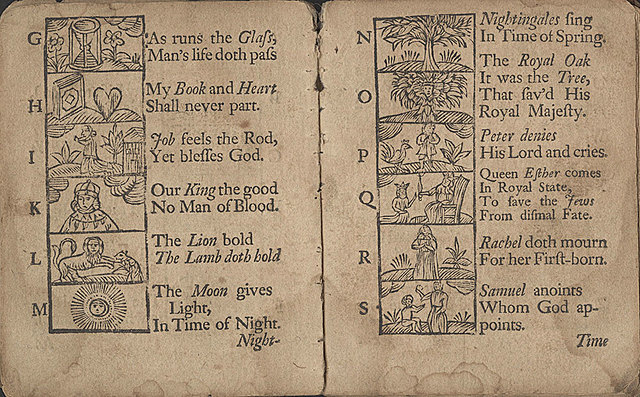 G
As runs the Glaſs,
Man's life doth paſs
H
My Book and Heart
Shall never part.
I
Job feels the Rod,
Yet bleſſes God.
K
Our King the good
No Man of Blood.
L
The Lion bold
The Lamb doth hold
M
The Moon gives
Light,
In Time of Night.
Night-
N
Nightingales ſing
In Time of Spring.
O
The Royal Oak
It was the Tree,
That ſav'd His
Royal Majeſty.
P
Peter denies
His Lord and cries.
Q
Queen Eſther comes
In Royal State,
To ſave the Jews
From diſmal Fate.
R
Rachel doth mourn
For her Firſt-born.
S
Samuel anoints
Whom God ap-
points.
Time